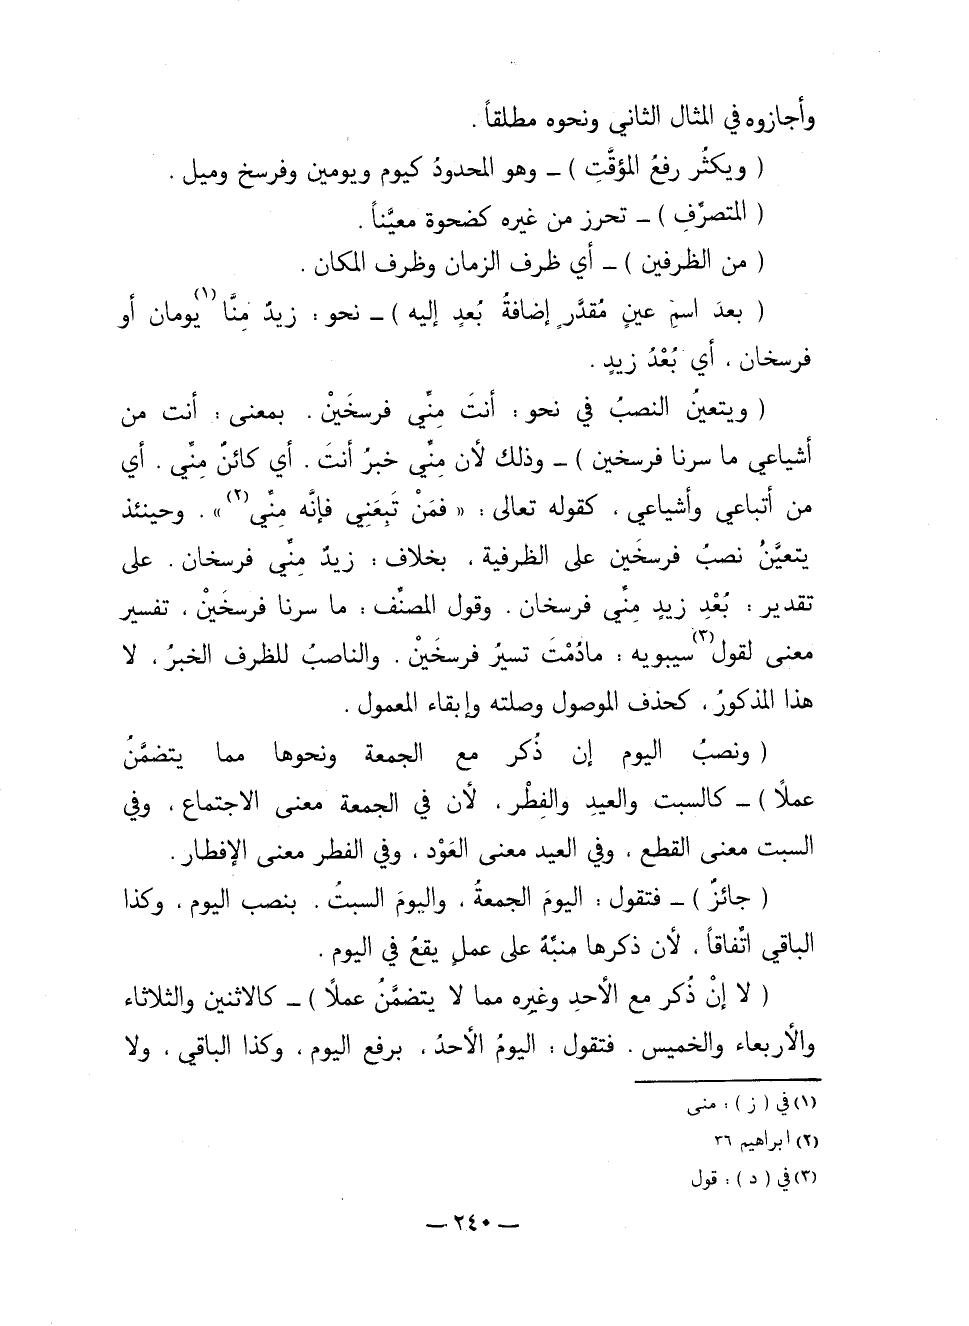 وأجازوه في المثال الثاني ونحوه مطلقاً .
( ويكثُر رفعُ المؤقَّتِ ) – وهو المحدودُ كيوم ويومين وفرسخ وميل .
( المتصرِّفِ ) – تحرز من غيره كضحوة معيَّناً .
( من الظرفين ) – أي ظرف الزمان وظرف المكان .
( بعدَ اسمِ عينٍ مُقدَّرٍ إضافةُ بُعدٍ إليه ) – نحو : زيدٌ مِنَّا (١) يومان أو
فرسخان ، أي بُعْدُ زيدٍ .
( ويتعينُ النصبُ في نحو : أنتَ مِنِّي فرسخَيْن . بمعنى : أنت من
أشياعي ما سرنا فرسخين ) – وذلك لأن مِنِّي خبرُ أنتَ . أي كائنٌ مِنِّي . أي
من أتباعي وأشياعي ، كقوله تعالى : « فمَنْ تَبِعَني فإنَّه مِنِّي (٢) » . وحينئذ
يتعيَّنُ نصبُ فرسخَين على الظرفية ، بخلاف : زيدٌ مِنِّي فرسخان . على
تقدير : بُعْدِ زيدٍ مِنِّي فرسخان . وقول المصنِّف : ما سرنا فرسخَيْن ، تفسير
معنى لقول (٣) سيبويه : مادُمْتَ تسيرُ فرسخَيْن . والناصبُ للظرف الخبرُ ، لا
هذا المذكورُ ، كحذف الموصول وصلته وإبقاء المعمول .
( ونصبُ اليوم إن ذُكر مع الجمعة ونحوها مما يتضمَّنُ
عملاً ) – كالسبت والعيدِ والفِطْرِ ، لأن في الجمعة معنى الاجتماع ، وفي
السبت معنى القطع ، وفي العيد معنى العَوْد ، وفي الفطر معنى الإفطار .
( جائزٌ ) – فتقول : اليومَ الجمعةُ ، واليومَ السبتُ . بنصب اليوم ، وكذا
الباقي اتِّفاقاً ، لأن ذكرها منبِّهٌ على عملٍ يقعُ في اليوم .
( لا إنْ ذُكر مع الأحدِ وغيره مما لا يتضمَّنُ عملاً ) – كالاثنين والثلاثاء
والأربعاء والخميس . فتقول : اليومُ الأحدُ ، برفع اليوم ، وكذا الباقي ، ولا
(١) في ( ز ) : منى
(٢) ابراهيم ٣٦
(٣) في ( د ) : قول
– ٢٤٠ –